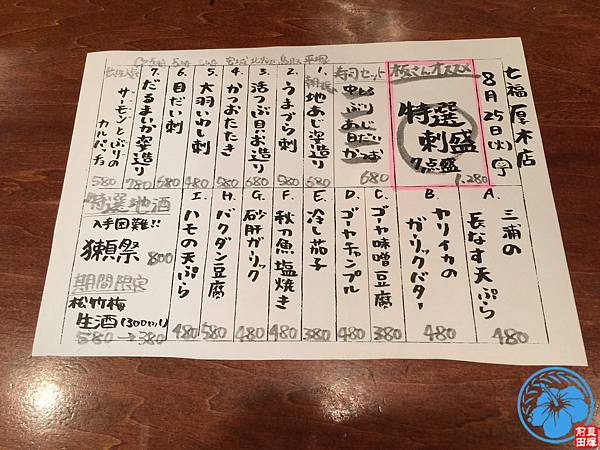 七福 厚木店
8月25日(火)
板さんオススメ
特選
刺盛
7点盛
1,280
寿司セット
中とろ
ぶり
あじ
目だい
かつお
680
1. 朝獲れ 地あじ姿造り 680
2. うまづら刺 580
3. 活つぶ貝お造り 680
4. かつおたたき 580
5. 大羽いわし刺 480
6. 目だい刺 680
7. だるまいか姿造り 580
サーモンとぶりのカルパッチョ 580
A. 三浦の長なす天ぷら 480
B. ヤリイカのガーリックバター 480
C. ゴーヤ味噌豆腐 380
D. ゴーヤチャンプル 480
E. 冷し茄子 380
F. 秋刀魚塩焼き 480
G. 砂肝ガーリック 480
H. バクダン豆腐 580
I. ハモの天ぷら 480
特選地酒
入手困難!!
獺祭 800
期間限定
松竹梅
生酒(300ml)
580→380